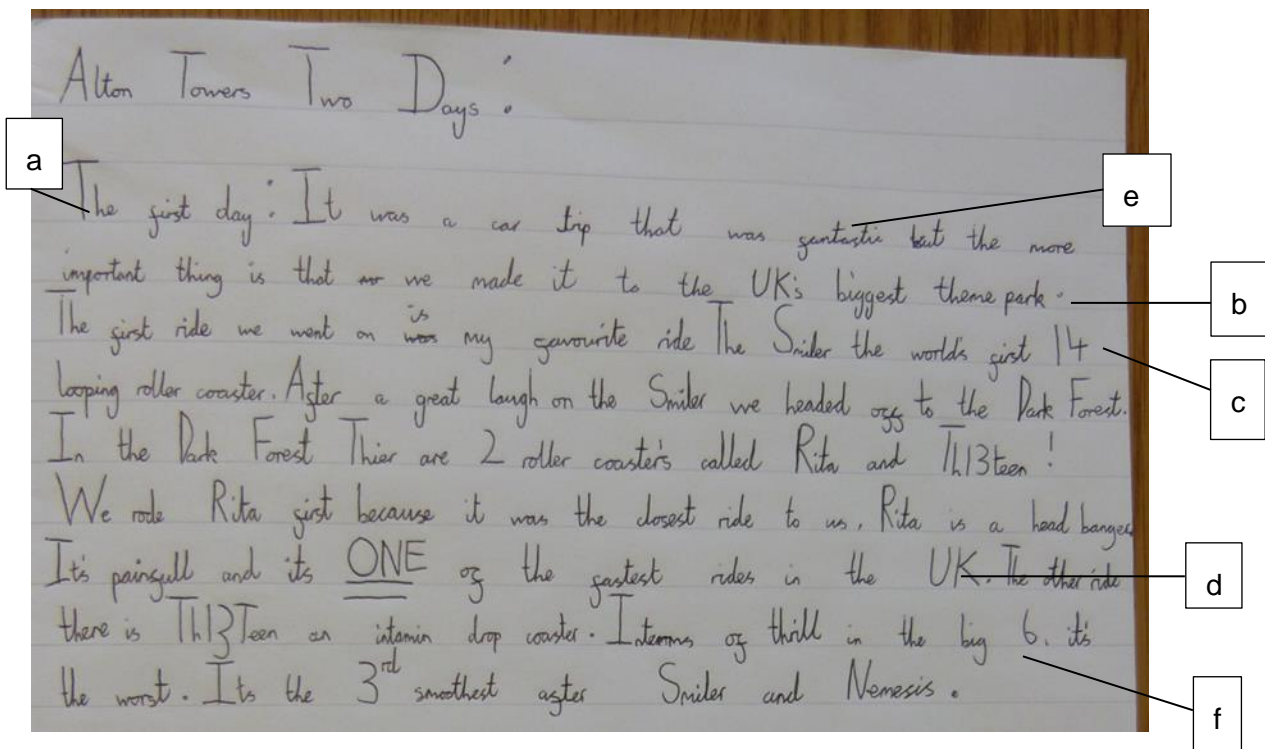 Alton Towers Two Days :
a
The first day : It was a car trip that was fantastic but the more
e
important thing is that we made it to the UK's biggest theme park .
b
The first ride we went on is was my favourite ride The Smiler the world's first 14
c
looping roller coaster. After a great laugh on the Smiler we headed off to the Dark Forest.
In the Dark Forest Thier are 2 roller coaster's called Rita and Th13teen !
We rode Rita first because it was the closest ride to us. Rita is a head banger
It's painfull and its ONE of the fastest rides in the UK. The other ride
d
there is Th13Teen an intamin drop coaster. Interms of thrill in the big 6. it's
f
the worst. Its the 3rd smoothest after Smiler and Nemesis.